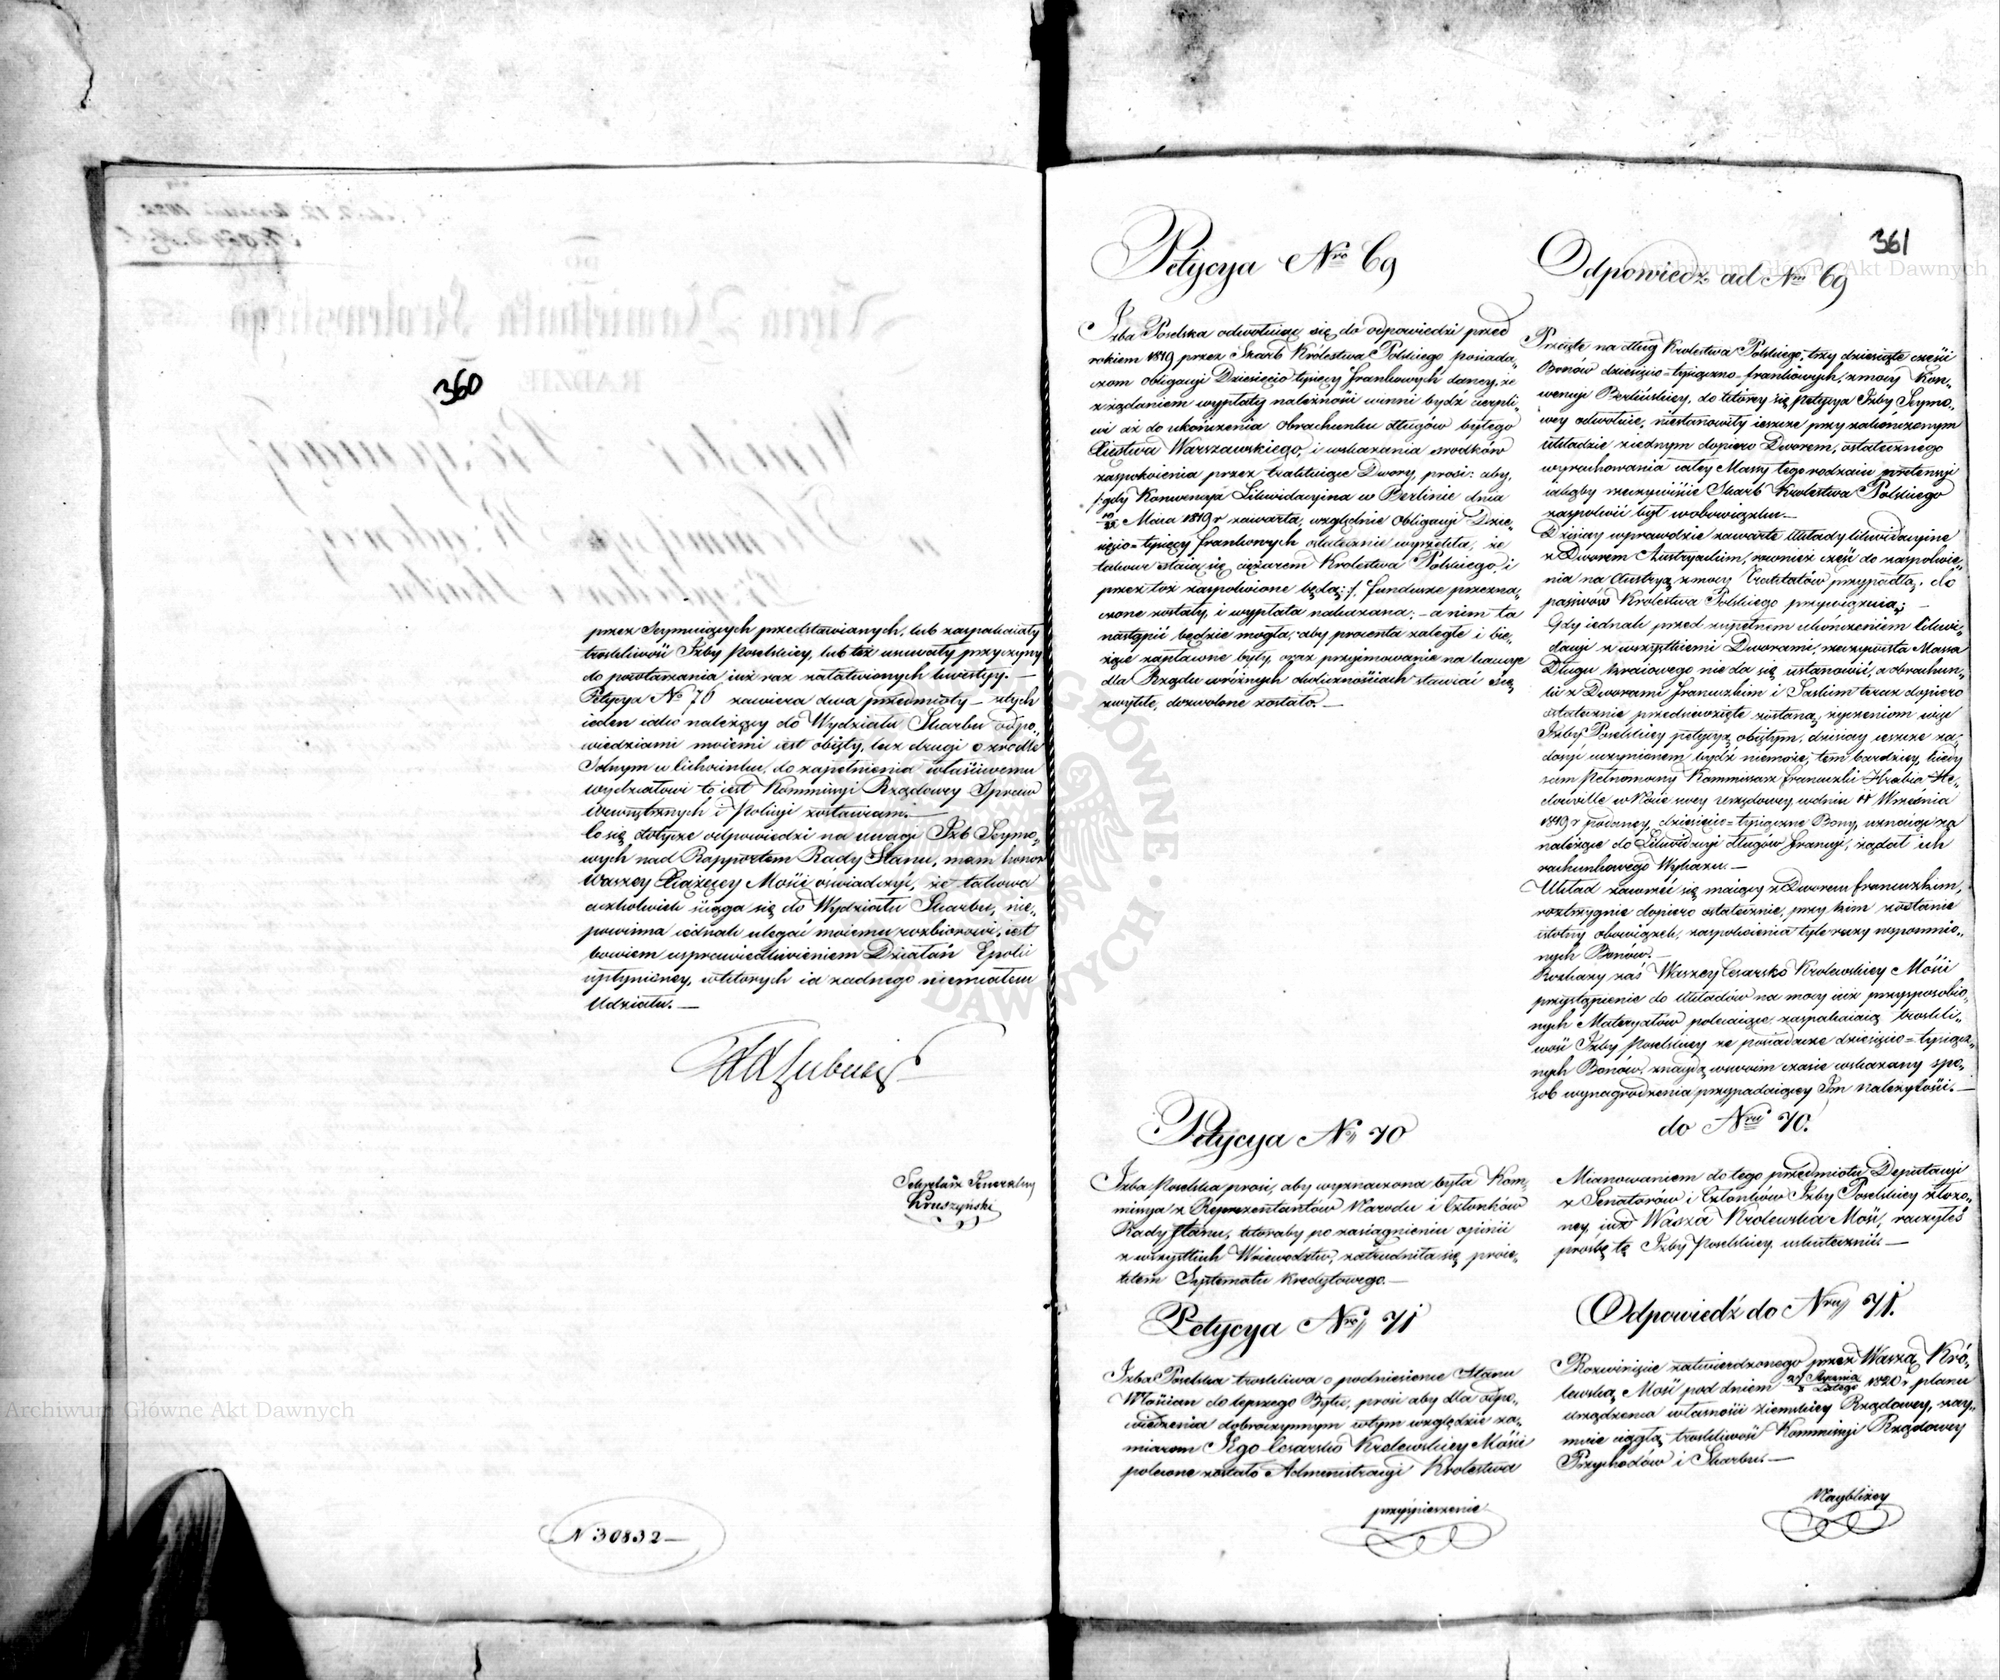 360
przez Seymuiących przedstawianych, lub zaspakaiały
troskliwość Izby Poselskiey, lub też usuwały przyczynę
do powtarzania iuż raz załatwionych kwestyy. —
Petycya No 70 zawiera dwa przedmioty — z tych
ieden iako należący do Wydziału Skarbu odpo„
wiedziami moiemi iest obięty, lecz drugi o zrodle
Solnym w Ciechocinku, do zapełnienia właściwemu
wydziałowi to iest Kommissyi Rządowey Spraw
Wewnętrznych i Policyi zostawiam. —
Co się dotycze odpowiedzi na uwagi Izb Seymo„
wych nad Rapportem Rady Stanu, mam honor
Waszey Xiążęcey Mości oświadczyć, że takowa
aczkolwiek ściąga się do Wydziału Skarbu, nie„
powinna iednak ulegać moiemu rozbiorowi, iest
bowiem usprawiedliwieniem Działań Epoki
upłynioney, w których ia żadnego niemiałem
Udziału. —
Sekretarz Generalny
Kruszyński
N 30832 —
361
Petycya Nro 69
Izba Poselska odwołuiąc się do odpowiedzi przed
rokiem 1819 przez Skarb Królestwa Polskiego posiada„
czom obligacyi Dziesięcio tysięcy frankowych daney, że
z żądaniem wypłaty należności winni bydź cierpli„
wi aż do ukończenia obrachunku długów byłego
Xięstwa Warszawskiego, i wskazania srodków
zaspokoienia przez traktuiące Dwory, prosi: aby,
/: gdy Konwencya Likwidacyina w Berlinie dnia
10/22 Maia 1819 r zawarta, względnie Obligacyi Dzie„
sięcio-tysięcy frankowych ostatecznie wyrzekła, że
takowe staią się ciężarem Krolestwa Polskiego, i
przez toż zaspokoione będą :/ fundusze przezna„
czone zostały, i wypłata nakazana; — a nim ta
nastąpić będzie mogła, aby procenta zaległe i bie„
żące zapłacone były, oraz przyimowanie na kaucye
dla Rządu w różnych okolicznościach stawiać się
zwykłe, dozwolone zostało. —
Odpowiedz ad Nrm 69
Przeięte na dług Krolestwa Polskiego, trzy dziesiąte części
Bonów dziesięcio-tysiączno-frankowych, z mocy Kon„
wencyi Berlińskiey, do ktorey się petycya Izby Seymo„
wey odwołuie, niestanowiły ieszcze przy zakończonym
Układzie z iednym dopiero Dworem, ostatecznego
wyrachowania całey Massy tego rodzaiu pretensyi
iakąby rzeczywiście Skarb Krolestwa Polskiego
zaspokoić był w obowiązku. —
Dzisiay wprawdzie zawarte Układy likwidacyine
z Dworem Austryackim, rownież część do zaspokoie„
nia na Austryą z mocy Traktatów przypadłą, do
passivów Krolestwa Polskiego przywiązuią; —
Gdy iednak przed zupełnem ukończeniem likwi„
dacyi z wszystkiemi Dworami, rzeczywista Massa
Długu kraiowego nie da się ustanowić, a obrachun„
ki z Dworami francuzkim i Saskim teraz dopiero
ostatecznie przedsięwzięte zostaną, życzeniom więc
Izby Poselskiey petycyą obiętym, dzisiay ieszcze za„
dosyć uczynionem bydź niemoże, tem bardziey, kiedy
sam Pełnomocny Kommissarz francuzki Hrabia He„
douville w Nocie swey urzędowey w dniu 14 Września
1819 r podaney, dziesięcio-tysiączne Bony, uznaiąc za
należące do Likwidacyi długów francyi, żądał ich
rachunkowego Wykazu. —
Układ zawrzeć się maiący z Dworem francuzkim,
roztrzygnie dopiero ostatecznie, przy kim zostanie
istotny obowiązek, zaspokoienia tyle razy wspomnio„
nych Bonów. —
Rozkazy zaś Waszey Cesarsko Krolewskiey Mości
przystąpienie do Układów na mocy iuż przysposobio„
nych Materyałów polecaiące, zaspakaiaią troskli„
wość Izby Poselskiey że posiadacze dziesięcio-tysiącz„
nych Bonów, znaydą w swoim czasie wskazany spo„
sob wynagrodzenia przypadaiącey Im należytości. —
Petycya No 70
Izba Poselska prosi, aby wyznaczona była Kom„
missya z Reprezentantów Narodu i Członków
Rady Stanu, ktoraby po zasiągnieniu opinii
z wszystkich Woiewodztw, zatrudniła się proie„
ktem Systematu kredytowego. —
do Nru 70.
Mianowaniem do tego przedmiotu Deputacyi
z Senatorów i Członków Izby Poselskiey złożo„
ney, iuż Wasza Krolewska Mość, raczyłeś
prośbę tę Izby Poselskiey uskutecznić. —
Petycya Nro 71
Izba Poselska troskliwa o podniesienie Stanu
Włościan do lepszego Bytu, prosi aby dla odpo„
wiedzenia dobroczynnym w tym względzie za„
miarom Jego Cesarsko Krolewskiey Mości
polecone zostało Administracyi Krolestwa
przyspieszenie
Odpowiedź do Nru 71.
Rozwinięcie zatwierdzonego przez Waszą Kró„
lewską Mość pod dniem 21 Stycznia/2 Lutego 1820 r planu
urządzenia własności ziemskiey Rządowey, zay„
muie ciągłą troskliwość Kommissyi Rządowey
Przychodów i Skarbu. —
Naybliżey